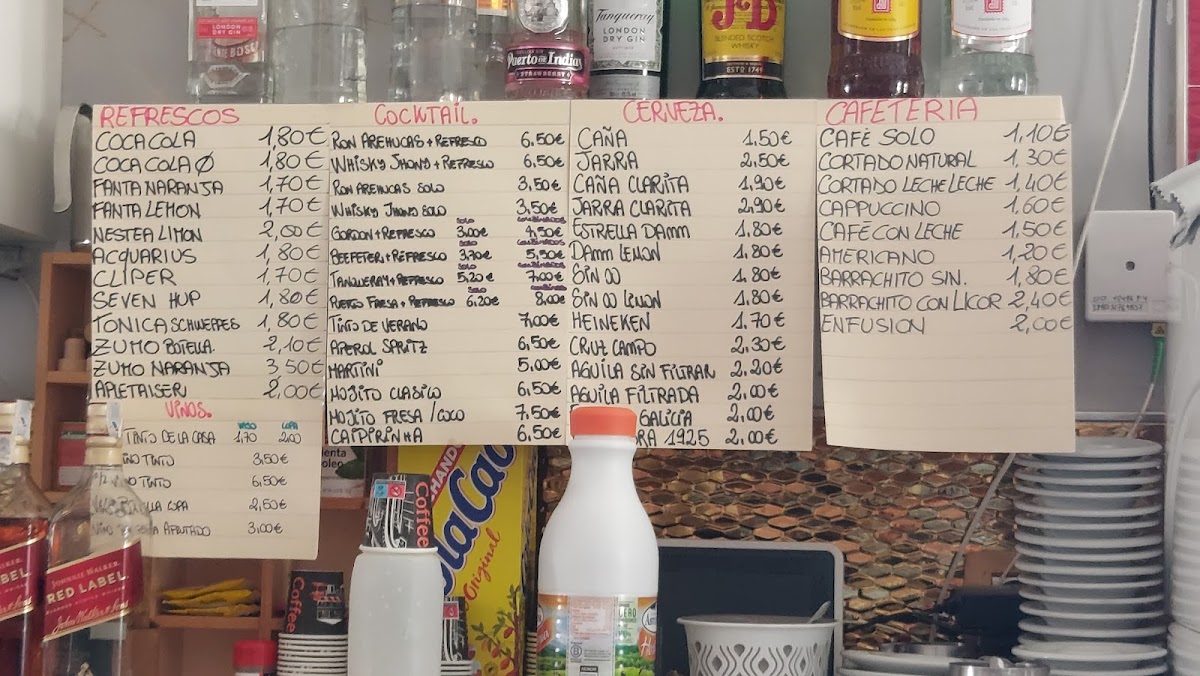 LONDON
DRY GIN
Puerto de Indias
STRAWBERRY
Tanqueray
LONDON
DRY GIN
J&B
BLENDED SCOTCH
WHISKY
ESTD 1749
REFRESCOS
COCA COLA 1,80€
COCA COLA Ø 1,80€
FANTA NARANJA 1,70€
FANTA LEMON 1,70€
NESTEA LIMON 2,00€
ACQUARIUS 1,80€
CLIPER 1,70€
SEVEN HUP 1,80€
TONICA SCHWEPPES 1,80€
ZUMO BOTELLA 2,10€
ZUMO NARANJA 3,50€
APLETAISER 2,00€
VINOS.
VASO COPA
TINTO DE LA CASA 1,70 2,00
TINTO 3,50€
TINTO 6,50€
COPA 2,50€
AFRUTADO 3,00€
COCKTAIL.
RON AREHUCAS + REFRESCO 6,50€
WHISKY JHONY + REFRESCO 6,50€
RON AREHUCAS SOLO 3,50€
WHISKY JHONY SOLO 3,50€
SOLO COMBINADOS
GORDON + REFRESCO 3,00€ 4,50€
SOLO COMBINADOS
BEEFETER + REFRESCO 3,70€ 5,50€
SOLO COMBINADOS
TANQUERAY + REFRESCO 5,20€ 7,00€
SOLO COMBINADOS
PUERTO FRESA + REFRESCO 6,20€ 8,00€
TINTO DE VERANO 7,00€
APEROL SPRITZ 6,50€
MARTINI 5,00€
MOJITO CLASICO 6,50€
MOJITO FRESA / COCO 7,50€
CAIPIRINHA 6,50€
CERVEZA.
CAÑA 1,50€
JARRA 2,50€
CAÑA CLARITA 1,90€
JARRA CLARITA 2,90€
ESTRELLA DAMM 1,80€
DAMM LEMON 1,80€
SIN 00 1,80€
SIN 00 LEMON 1,80€
HEINEKEN 1,70€
CRUZ CAMPO 2,30€
AGUILA SIN FILTRAR 2,20€
AGUILA FILTRADA 2,00€
GALICIA 2,00€
1925 2,00€
CAFETERIA
CAFÈ SOLO 1,10€
CORTADO NATURAL 1,30€
CORTADO LECHE LECHE 1,40€
CAPPUCCINO 1,60€
CAFÈ CON LECHE 1,50€
AMERICANO 1,20€
BARRACHITO SIN. 1,80€
BARRACHITO CON LICOR 2,40€
ENFUSION 2,00€
JOHNNIE WALKER
RED LABEL
LABEL
Coffee
Coffee
ColaCao
Original